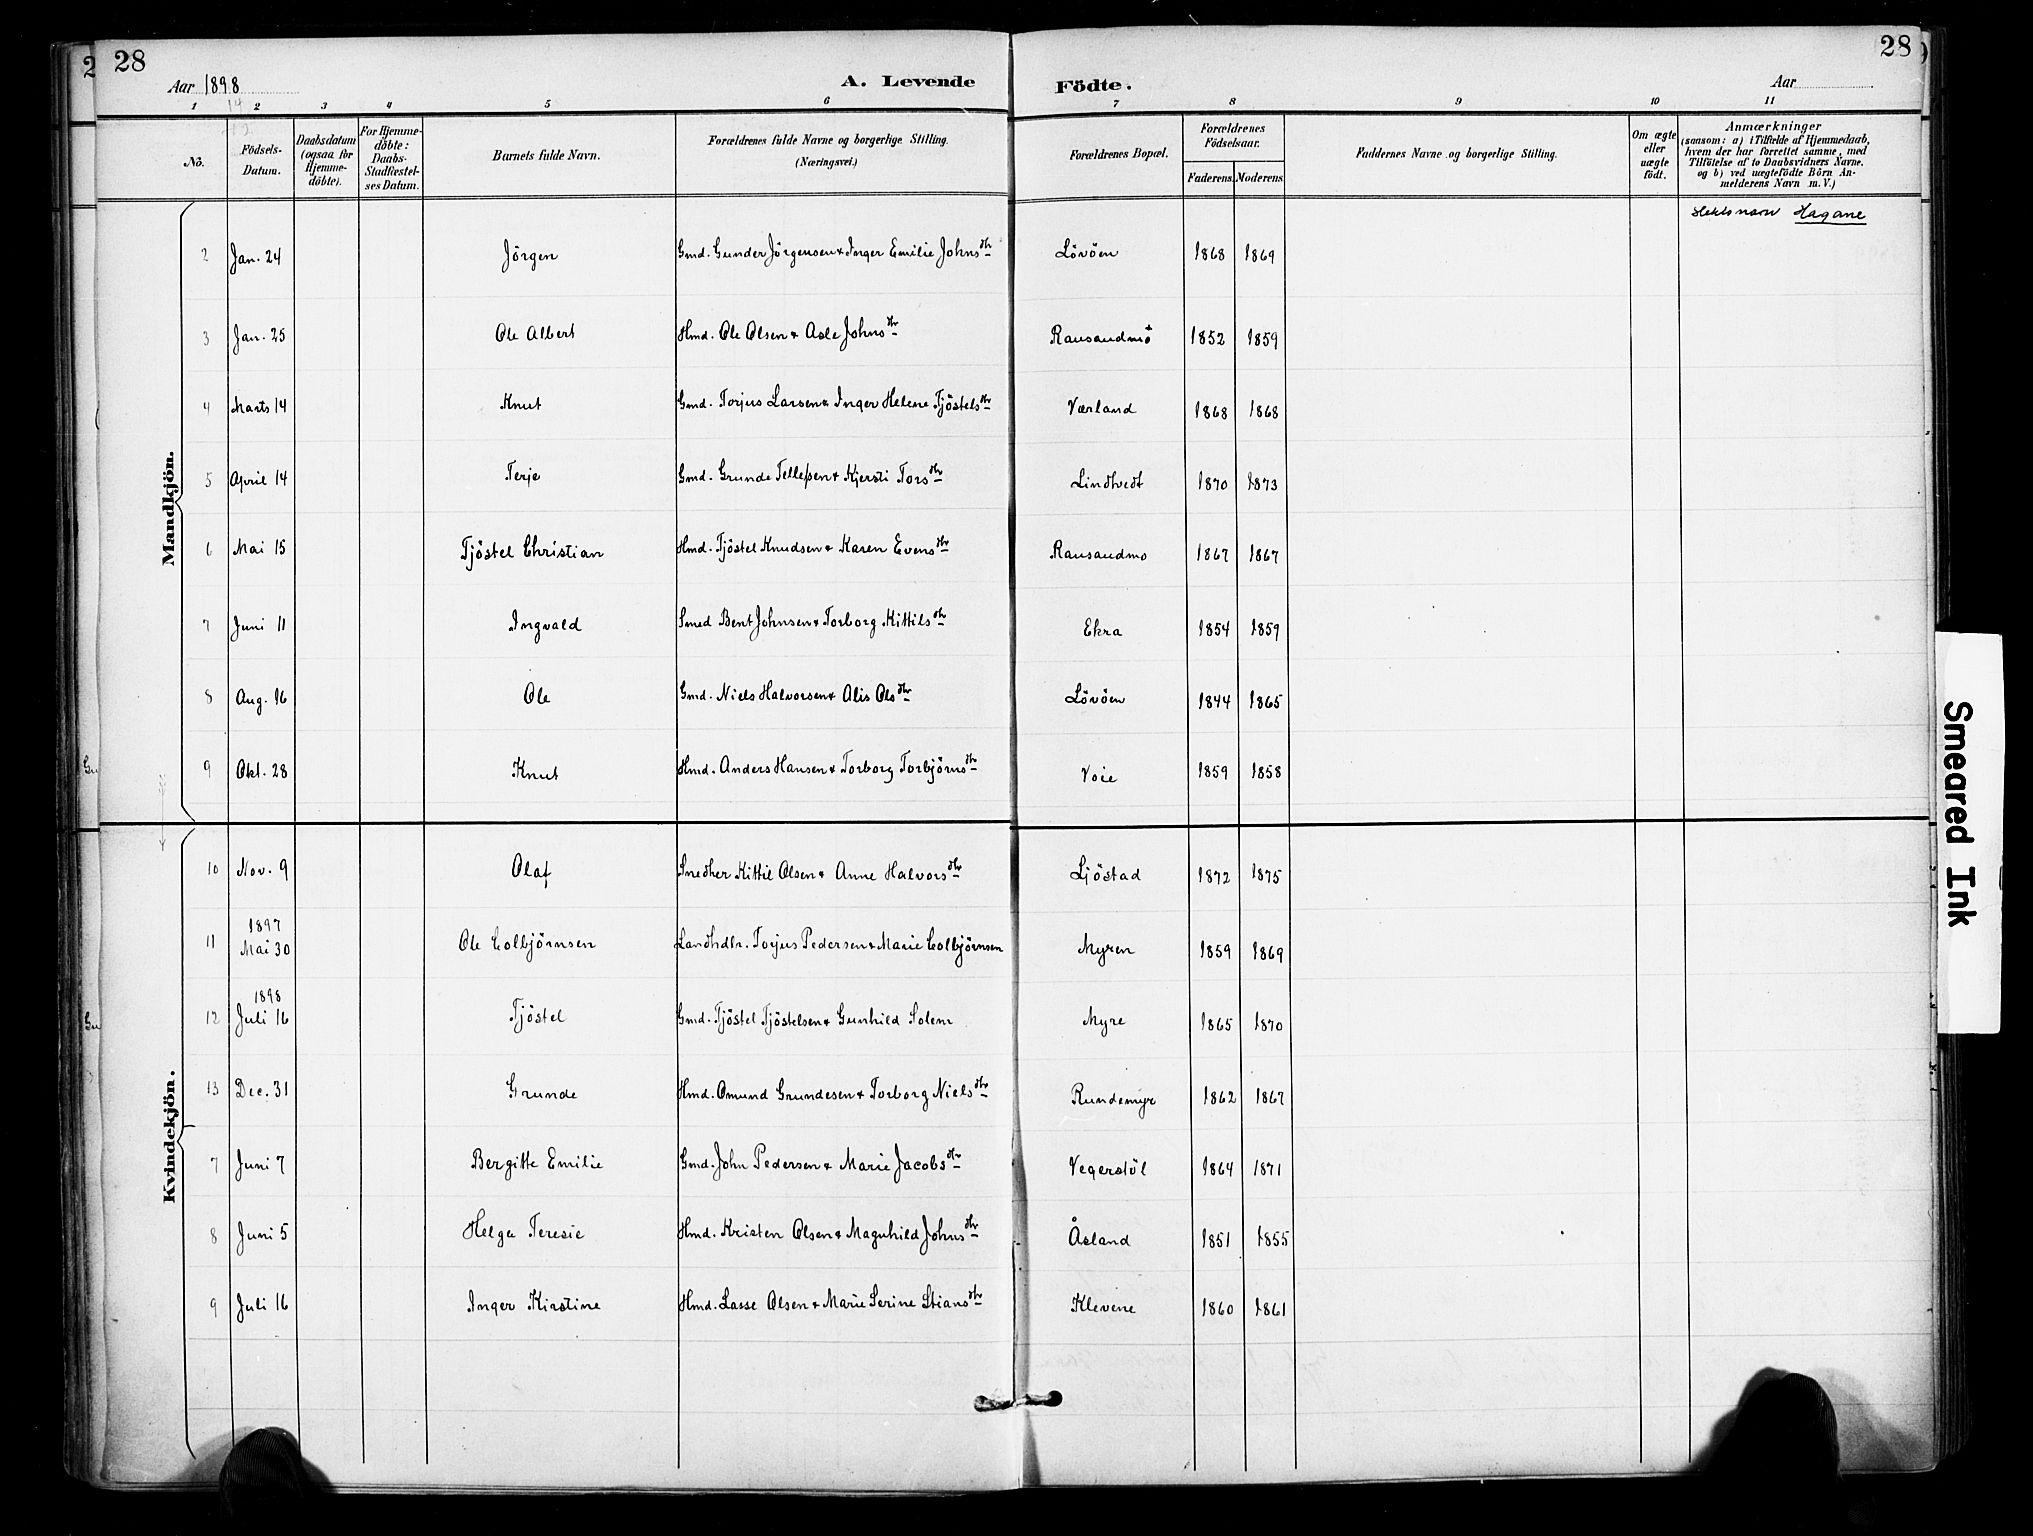 28 28
Aar 1898 A. Levende Födte. Aar
1 2 3 4 5 6 7 8 9 10 11
No.
Födsels-
Datum.
Daabsdatum
(ogsaa for
Hjemme-
döbte).
For Hjemme-
döbte:
Daabs-
Stadfæstel-
ses Datum.
Barnets fulde Navn.
Forældrenes fulde Navne og borgerlige Stilling.
(Næringsvei.)
Forældrenes Bopæl.
Forældrenes
Födselsaar.
Faderens. Moderens.
Faddernes Navne og borgerlige Stilling.
Om ægte
eller
uægte
födt.
Anmærkninger
(saasom: a) i Tilfælde af Hjemmedaab,
hvem der har forrettet samme, med
Tilföielse af to Daabsvidners Navne,
og b) ved uægtefödte Börn An-
melderens Navn m. V.)
Mandkjön.
Slektsnavn Hagane
2 Jan. 24 Jörgen Gmd. Gunder Jörgensen & Inger Emilie Johnsdtr Lövöen 1868 1869
3 Jan. 25 Ole Albert Hmd. Ole Olsen & Asle Johnsdtr Rausandmo 1852 1859
4 Marts 14 Knut Gmd. Torjus Larsen & Inger Helene Tjöstelsdtr Værland 1868 1868
5 April 14 Terje Gmd. Grunde Tellefsen & Kjersti Torsdtr Lindtvedt 1870 1873
6 Mai 15 Tjöstel Christian Hmd. Tjöstel Knudsen & Karen Evensdtr Rausandmo 1867 1867
7 Juni 11 Ingvald Smed Bent Johnsen & Torborg Kittilsdtr Ekra 1854 1859
8 Aug. 16 Ole Gmd. Niels Halvorsen & Alis Olsdtr Lövöen 1844 1865
9 Okt. 28 Knut Hmd. Anders Hansen & Torborg Torbjörnsdtr Voie 1859 1858
Kvindekjön.
10 Nov. 9 Olaf Snedker Kittil Olsen & Anne Halvorsdtr Ljöstad 1872 1875
1897
11 Mai 30 Ole Colbjörnsen Landhdlr. Torjus Pedersen & Marie Colbjörnsen Myren 1859 1869
1898
12 Juli 16 Tjöstel Gmd. Tjöstel Tjöstelsen & Gunhild Solem Myre 1865 1870
13 Dec. 31 Grunde Hmd. Omund Grundesen & Torborg Nielsdtr Rundemyr 1862 1867
7 Juni 7 Bergitte Emilie Gmd. John Pedersen & Marie Jacobsdtr Vegerstöl 1864 1871
8 Juni 5 Helga Teresie Hmd. Kristen Olsen & Magnhild Johnsdtr Åsland 1851 1855
9 Juli 16 Inger Kirstine Hmd. Lasse Olsen & Marie Serine Stiansdtr Klevene 1860 1861
Smeared Ink